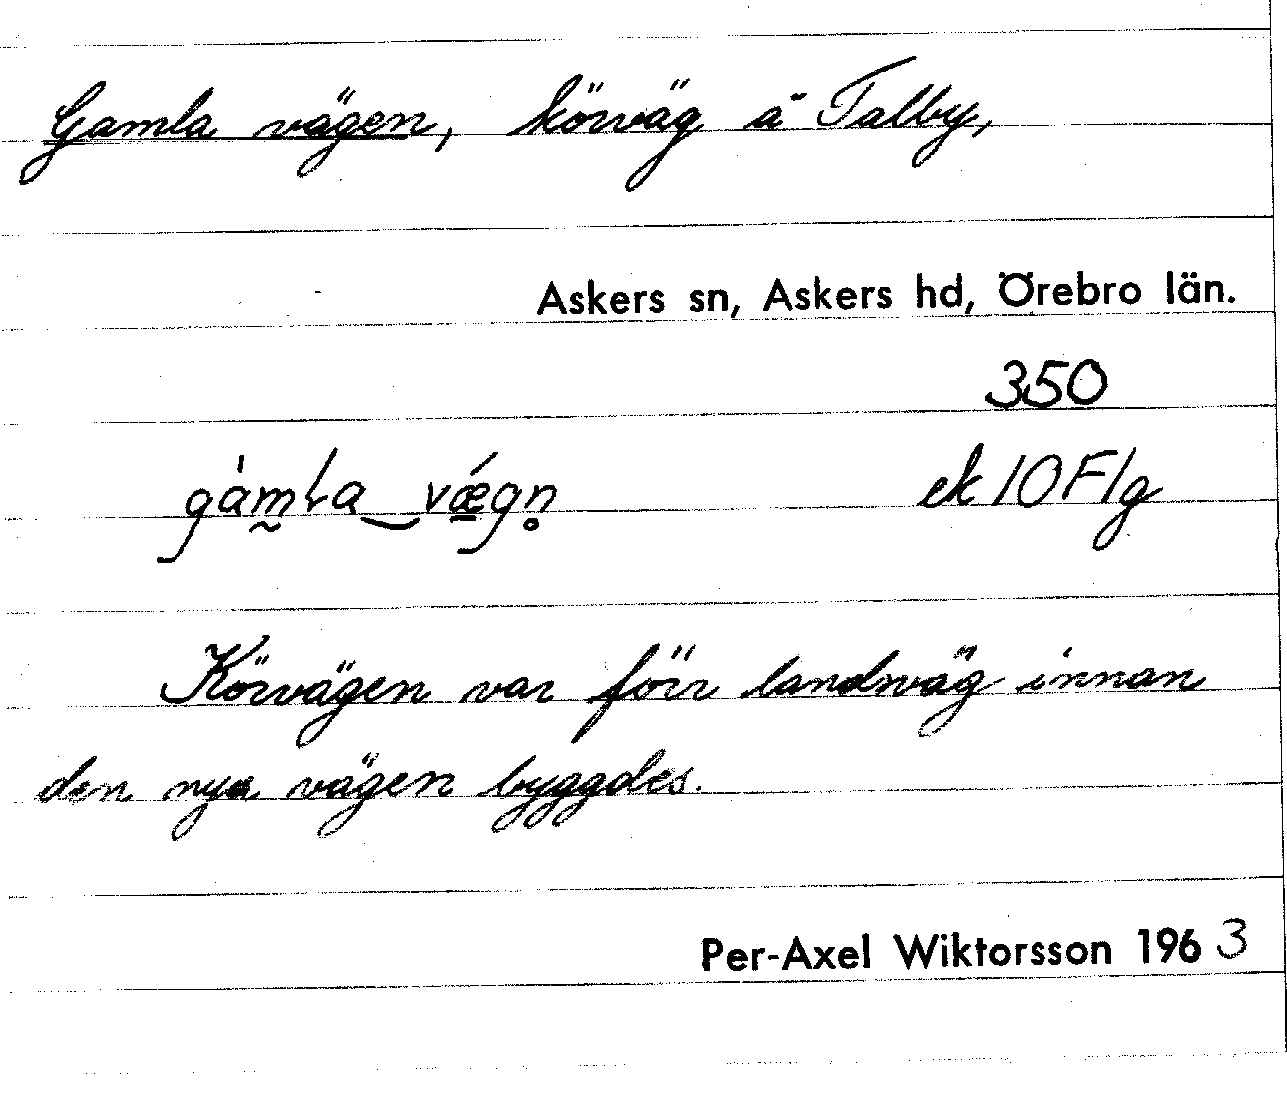 Gamla vägen, körväg å Talby,
Askers sn, Askers hd, Örebro län.
350
gàmla vǽgn̥ ek 10F1g
Körvägen var förr landsväg innan
den nya vägen byggdes.
Per-Axel Wiktorsson 1963